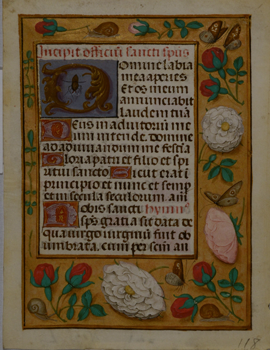 Incipit officiū sancti sp̄us
Domine labia
mea aperies
Et os meum
annunciabit
laudem tuā
Deus in adiutoriū me
um intende. Domine
ad adiuuandum me festīa
Gloria patri et filio et spi
ritui sancto Sicut erat i
principio et nunc et semp
et in secula seculorum. amē
Nobis sancti hymnus
sp̄s gratia sit data De
qua uirgo uirginū fuit ob
umbrata, cum per sc̄m an
118